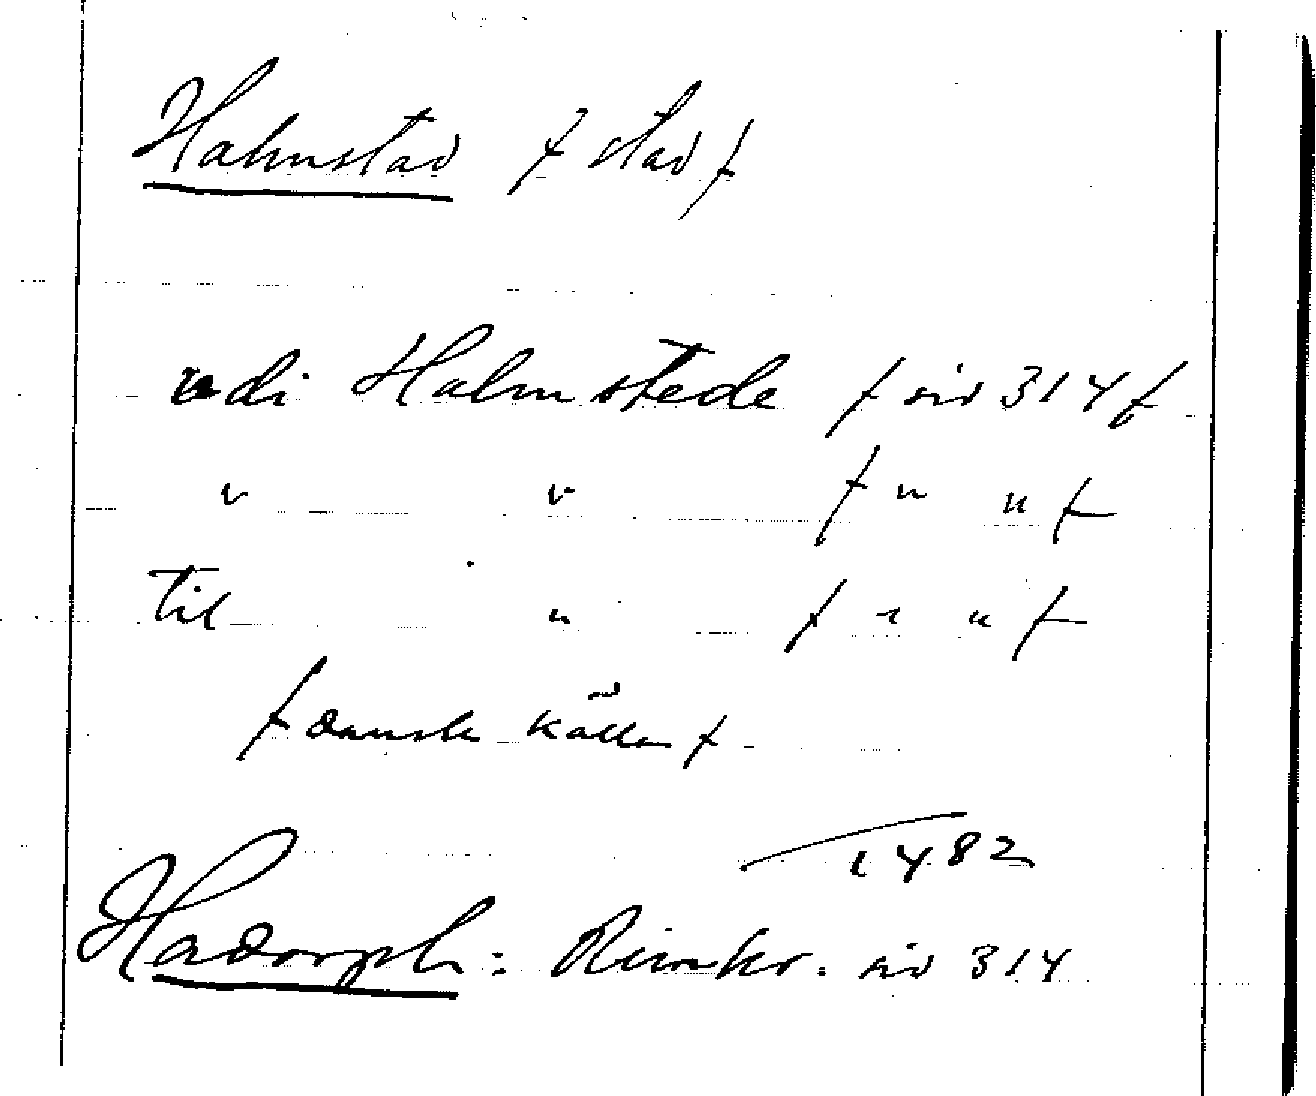 Halmstad / stad /
udi Halmstede / sid 314 /
" " / " " /
til " / " " /
/ dansk källa /
1482
Hadorph: Rimkr. sid 314